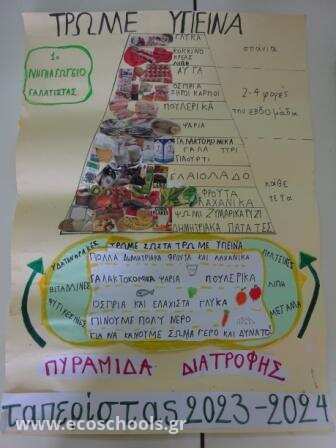 ΤΡΩΜΕ ΥΓΙΕΙΝΑ
1ο
ΝΗΠΙΑΓΩΓΕΙΟ
ΓΑΛΑΤΙΣΤΑΣ
ΓΛΥΚΑ
ΚΟΚΚΙΝΟ
ΚΡΕΑΣ
σπάνια
ΑΥΓΑ
ΟΣΠΡΙΑ
ΞΗΡΟΙ ΚΑΡΠΟΙ
ΠΟΥΛΕΡΙΚΑ
2-4 φορές
την εβδομάδα
ΨΑΡΙΑ
ΓΑΛΑΚΤΟΚΟΜΙΚΑ
ΓΑΛΑ ΤΥΡΙ
ΓΙΑΟΥΡΤΙ
ΕΛΑΙΟΛΑΔΟ
ΦΡΟΥΤΑ
ΛΑΧΑΝΙΚΑ
κάθε
ΨΩΜΙ ΖΥΜΑΡΙΚΑ ΡΥΖΙ
ΔΗΜΗΤΡΙΑΚΑ ΠΑΤΑΤΕΣ
ΤΡΩΜΕ ΣΩΣΤΑ ΤΡΩΜΕ ΥΓΙΕΙΝΑ
ΥΔΑΤΑΝΘΡΑΚΕΣ
ΠΡΩΤΕΙΝΕΣ
ΠΟΛΛΑ ΔΗΜΗΤΡΙΑΚΑ ΦΡΟΥΤΑ ΚΑΙ ΛΑΧΑΝΙΚΑ
ΒΙΤΑΜΙΝΕΣ
ΓΑΛΑΚΤΟΚΟΜΙΚΑ ΨΑΡΙΑ ΠΟΥΛΕΡΙΚΑ
ΛΙΠΗ
ΟΣΠΡΙΑ ΚΑΙ ΕΛΑΧΙΣΤΑ ΓΛΥΚΑ
ΜΕΤΑΛΛΑ
ΠΙΝΟΥΜΕ ΠΟΛΥ ΝΕΡΟ
ΓΙΑ ΝΑ ΚΑΝΟΥΜΕ ΣΩΜΑ ΓΕΡΟ ΚΑΙ ΔΥΝΑΤΟ
ΠΥΡΑΜΙΔΑ ΔΙΑΤΡΟΦΗΣ
ταπερίστας 2023-2024
www.ecoschools.gr